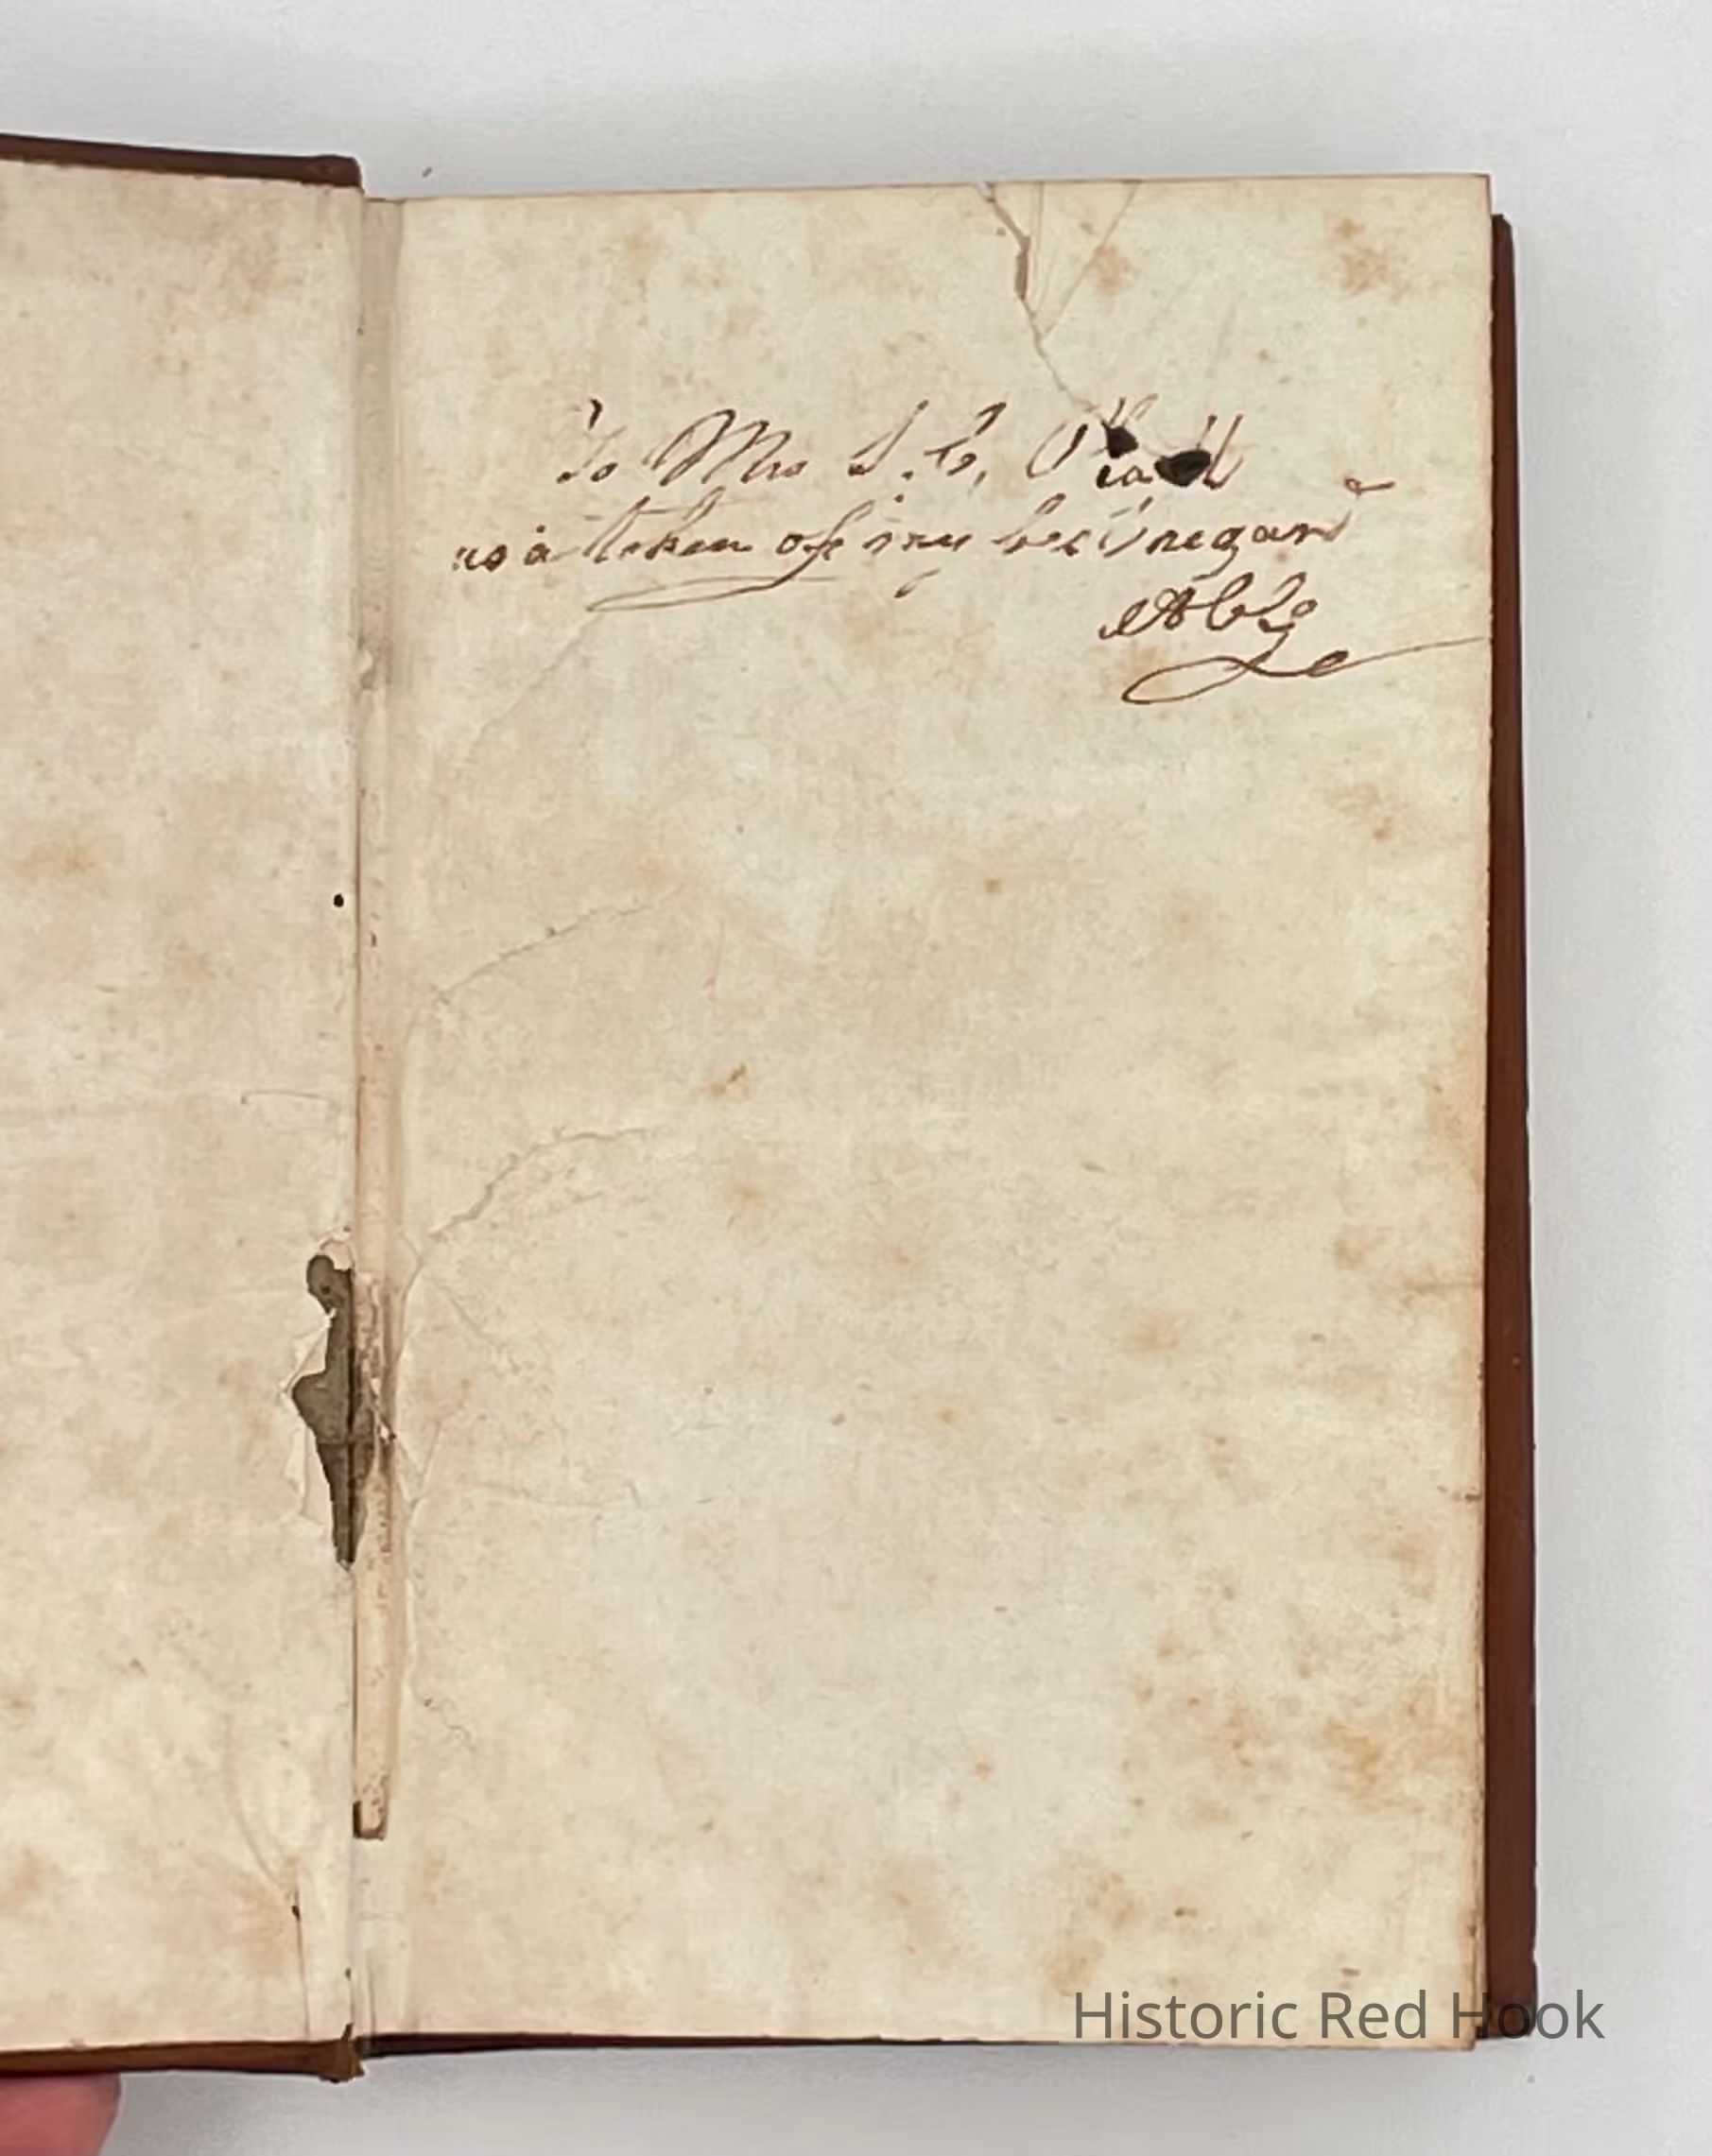 To Mrs S. C.
as a token of my best regard
Abby
Historic Red Hook